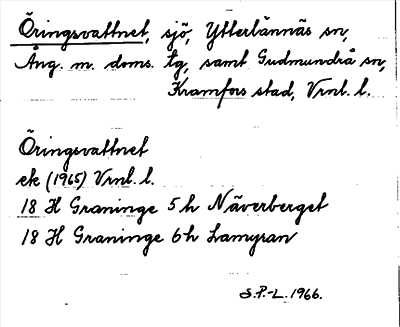 Öringsvattnet, sjö, Ytterlännäs sn,
Ång. m. doms. tg, samt Gudmundrå sn,
Kramfors stad, Vrnl. l.
Öringsvattnet
ek (1965) Vrnl. l.
18 H Graninge 5h Näverberget
18 H Graninge 6h Lamyran
S.P.-L. 1966.